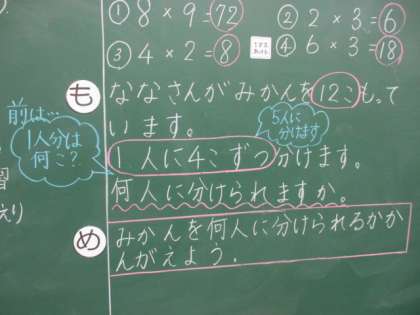 ① 8 × 9 = 72
② 2 × 3 = 6
③ 4 × 2 = 8
④ 6 × 3 = 18
も
ななさんがみかんを12こもって
います。
1人に4こずつ分けます。
何人に分けられますか。
前は…
1人分は
何こ?
5人に
分けます
め
みかんを何人に分けられるかか
んがえよう.